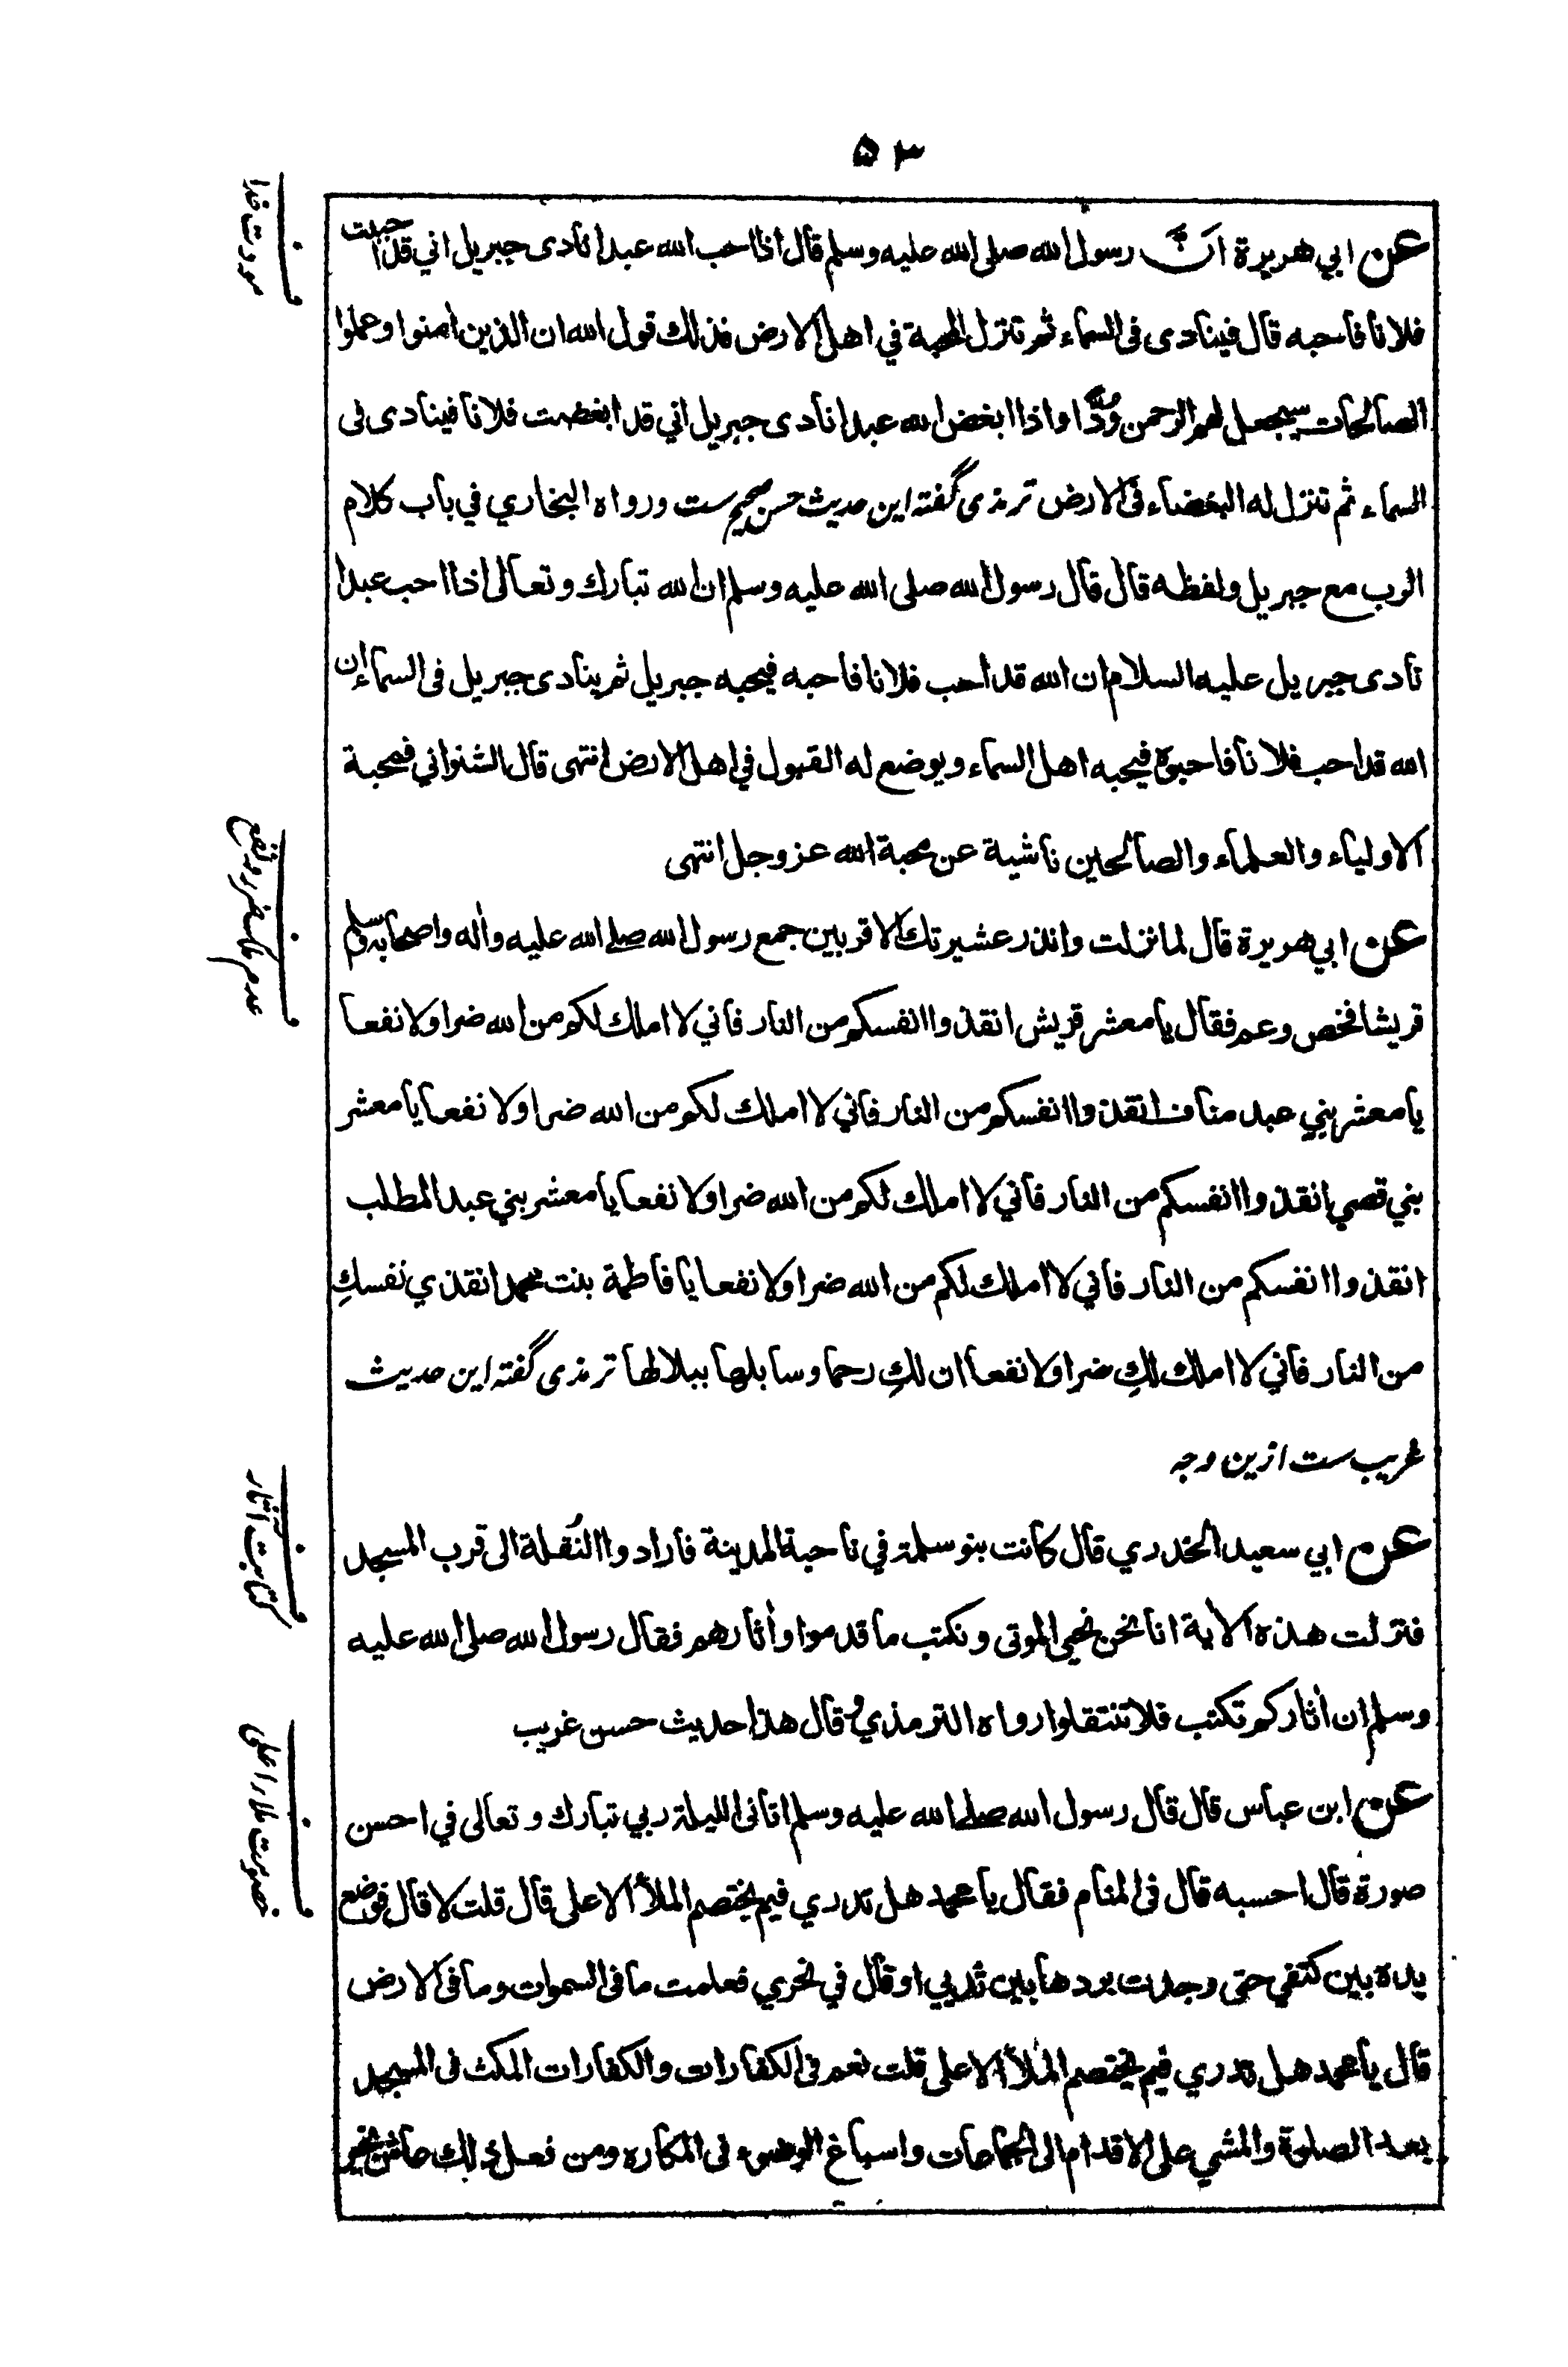 ۵۳
مودت خدا
عن ابي هريرة ان رسول الله صلى الله عليه وسلم قال اذا احب الله عبدا نادى جبريل اني قد احببت
فلانا فاحبه قال فينادى فى السماء ثم تنزل المحبة في اهل الارض فذلك قول الله ان الذين امنوا وعملوا
الصالحات سيجعل لهم الرحمن وُدًّا واذا ابغض الله عبدا نادى جبريل اني قد ابغضت فلانا فينادى فى
السماء ثم تنزل له البغضاء فى الارض ترمذى گفته اين حديث حسن صحيح ست ورواه البخاري في باب كلام
الرب مع جبريل ولفظه قال قال رسول الله صلى الله عليه وسلم ان الله تبارك وتعالى اذا احب عبدا
نادى جبريل عليه السلام ان الله قد احب فلانا فاحبه فيحبه جبريل ثم ينادى جبريل فى السماء إن
الله قد احب فلانا فاحبوه فيحبه اهل السماء ويوضع له القبول في اهل الارض انتهى قال الشنواني فمحبة
الاولياء والعلماء والصالحين ناشية عن محبة الله عز وجل انتهى
عدم ملك ضر ونفع
عن ابي هريرة قال لما نزلت وانذر عشيرتك الاقربين جمع رسول الله صلے الله عليه واٰله واصحابه وسلم
قريشا فخص وعم فقال يا معشر قريش انقذوا انفسكم من النار فاني لا املك لكم من الله ضرا ولا نفعا
يا معشر بني عبد مناف انقذوا انفسكم من النار فاني لا املك لكم من الله ضرا ولا نفعا يا معشر
بني قصي انقذوا انفسكم من النار فاني لا املك لكم من الله ضرا ولا نفعا يا معشر بني عبد المطلب
انقذوا انفسكم من النار فاني لا املك لكم من الله ضرا ولا نفعا يا فاطمة بنت محمد انقذي نفسكِ
من النار فاني لا املك لكِ ضرا ولا نفعا ان لكِ رحما وسابلها ببلالها ترمذى گفته اين حديث
غريب ست ازين وجه
كتابت آثار
عن ابي سعيد الخدري قال كانت بنو سلمة في ناحية المدينة فارادوا النُقلة الى قرب المسجد
فنزلت هذه الأية انا نحن نحيى الموتى ونكتب ما قدموا وأثارهم فقال رسول الله صلى الله عليه
وسلم ان أثاركم تكتب فلا تنتقلوا رواه الترمذي وقال هذا حديث حسن غريب
خصومت ملاء اعلى
عن ابن عباس قال قال رسول الله صلے الله عليه وسلم اتانى الليلة ربي تبارك وتعالى في احسن
صورة قال احسبه قال فى المنام فقال يا محمد هل تدري فيم يختصم الملأ الاعلى قال قلت لا قال فوضع
يده بين كتفي حتى وجدت بردها بين ثديي او قال في نحري فعلمت ما فى السموات وما فى الارض
قال يا محمد هل تدري فيم يختصم الملأ الاعلى قلت نعم فى الكفارات والكفارات المكث فى المسجد
بعد الصلوة والمشي على الاقدام الى الجماعات واسباغ الوضوء فى المكاره ومن فعل ذلك عاش بخير